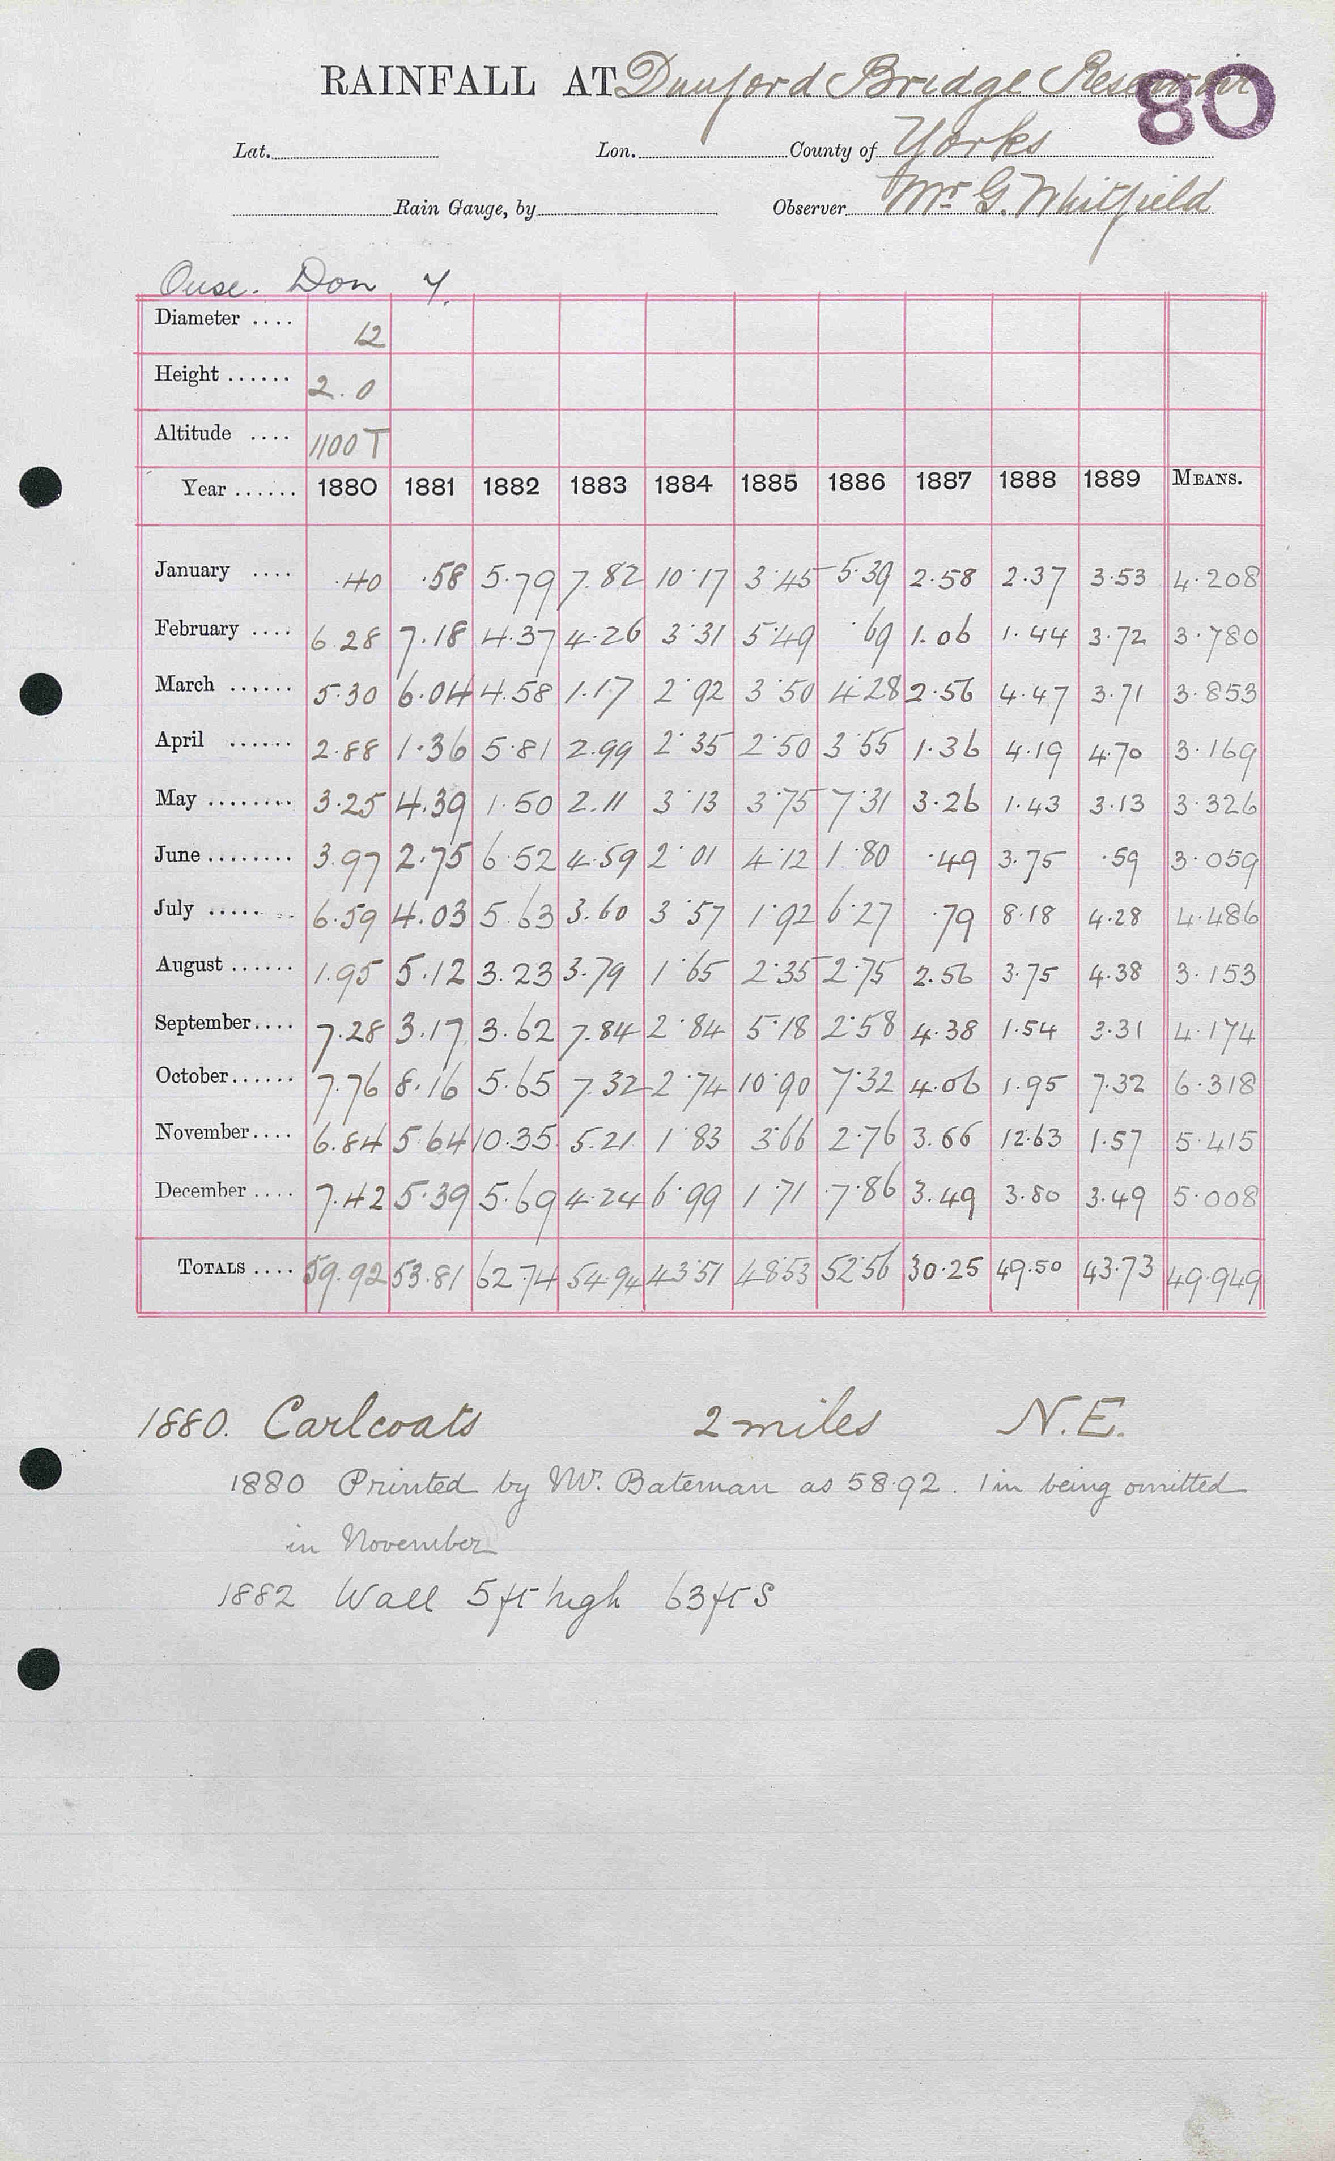 RAINFALL AT Dunford Bridge Reservoir
80
Lat. Lon. County of Yorks
Rain Gauge, by Observer Mr G. Whitfield
Ouse. Don Y.
Diameter .... 12
Height ...... 2.0
Altitude .... 1100 T
Year ...... 1880 1881 1882 1883 1884 1885 1886 1887 1888 1889 MEANS.
January .... .40 .58 5.79 7.82 10.17 3.45 5.39 2.58 2.37 3.53 4.208
February .... 6.28 7.18 4.37 4.26 3.31 5.49 .69 1.06 1.44 3.72 3.780
March ...... 5.30 6.04 4.58 1.17 2.92 3.50 4.28 2.56 4.47 3.71 3.853
April ...... 2.88 1.36 5.81 2.99 2.35 2.50 3.55 1.36 4.19 4.70 3.169
May ........ 3.25 4.39 1.50 2.11 3.13 3.75 7.31 3.26 1.43 3.13 3.326
June ........ 3.97 2.75 6.52 4.59 2.01 4.12 1.80 .49 3.75 .59 3.059
July ........ 6.59 4.03 5.63 3.60 3.57 1.92 6.27 .79 8.18 4.28 4.486
August ...... 1.95 5.12 3.23 3.79 1.65 2.35 2.75 2.56 3.75 4.38 3.153
September.... 7.28 3.17 3.62 7.84 2.84 5.18 2.58 4.38 1.54 3.31 4.174
October...... 7.76 8.16 5.65 7.32 2.74 10.90 7.32 4.06 1.95 7.32 6.318
November.... 6.84 5.64 10.35 5.21 1.83 3.66 2.76 3.66 12.63 1.57 5.415
December .... 7.42 5.39 5.69 4.24 6.99 1.71 7.86 3.49 3.80 3.49 5.008
TOTALS .... 59.92 53.81 62.74 54.94 43.51 48.53 52.56 30.25 49.50 43.73 49.949
1880. Carlcoats 2 miles N.E.
1880 Printed by Mr. Bateman as 58.92. 1 in being omitted
in November
1882 Wall 5 ft high 63 ft S